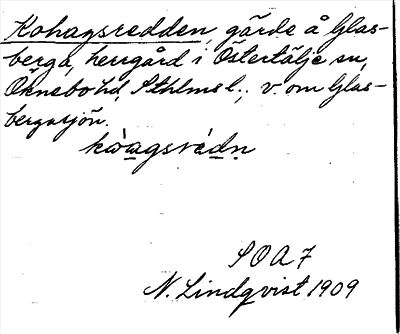 Kohagsredden, gärde å Glas-
berga, herrgård i Östertälje sn,
Öknebo hd, Sthlms l.; v. om Glas-
bergasjön.
kòagsrédn
SOA 7
N. Lindqvist 1909